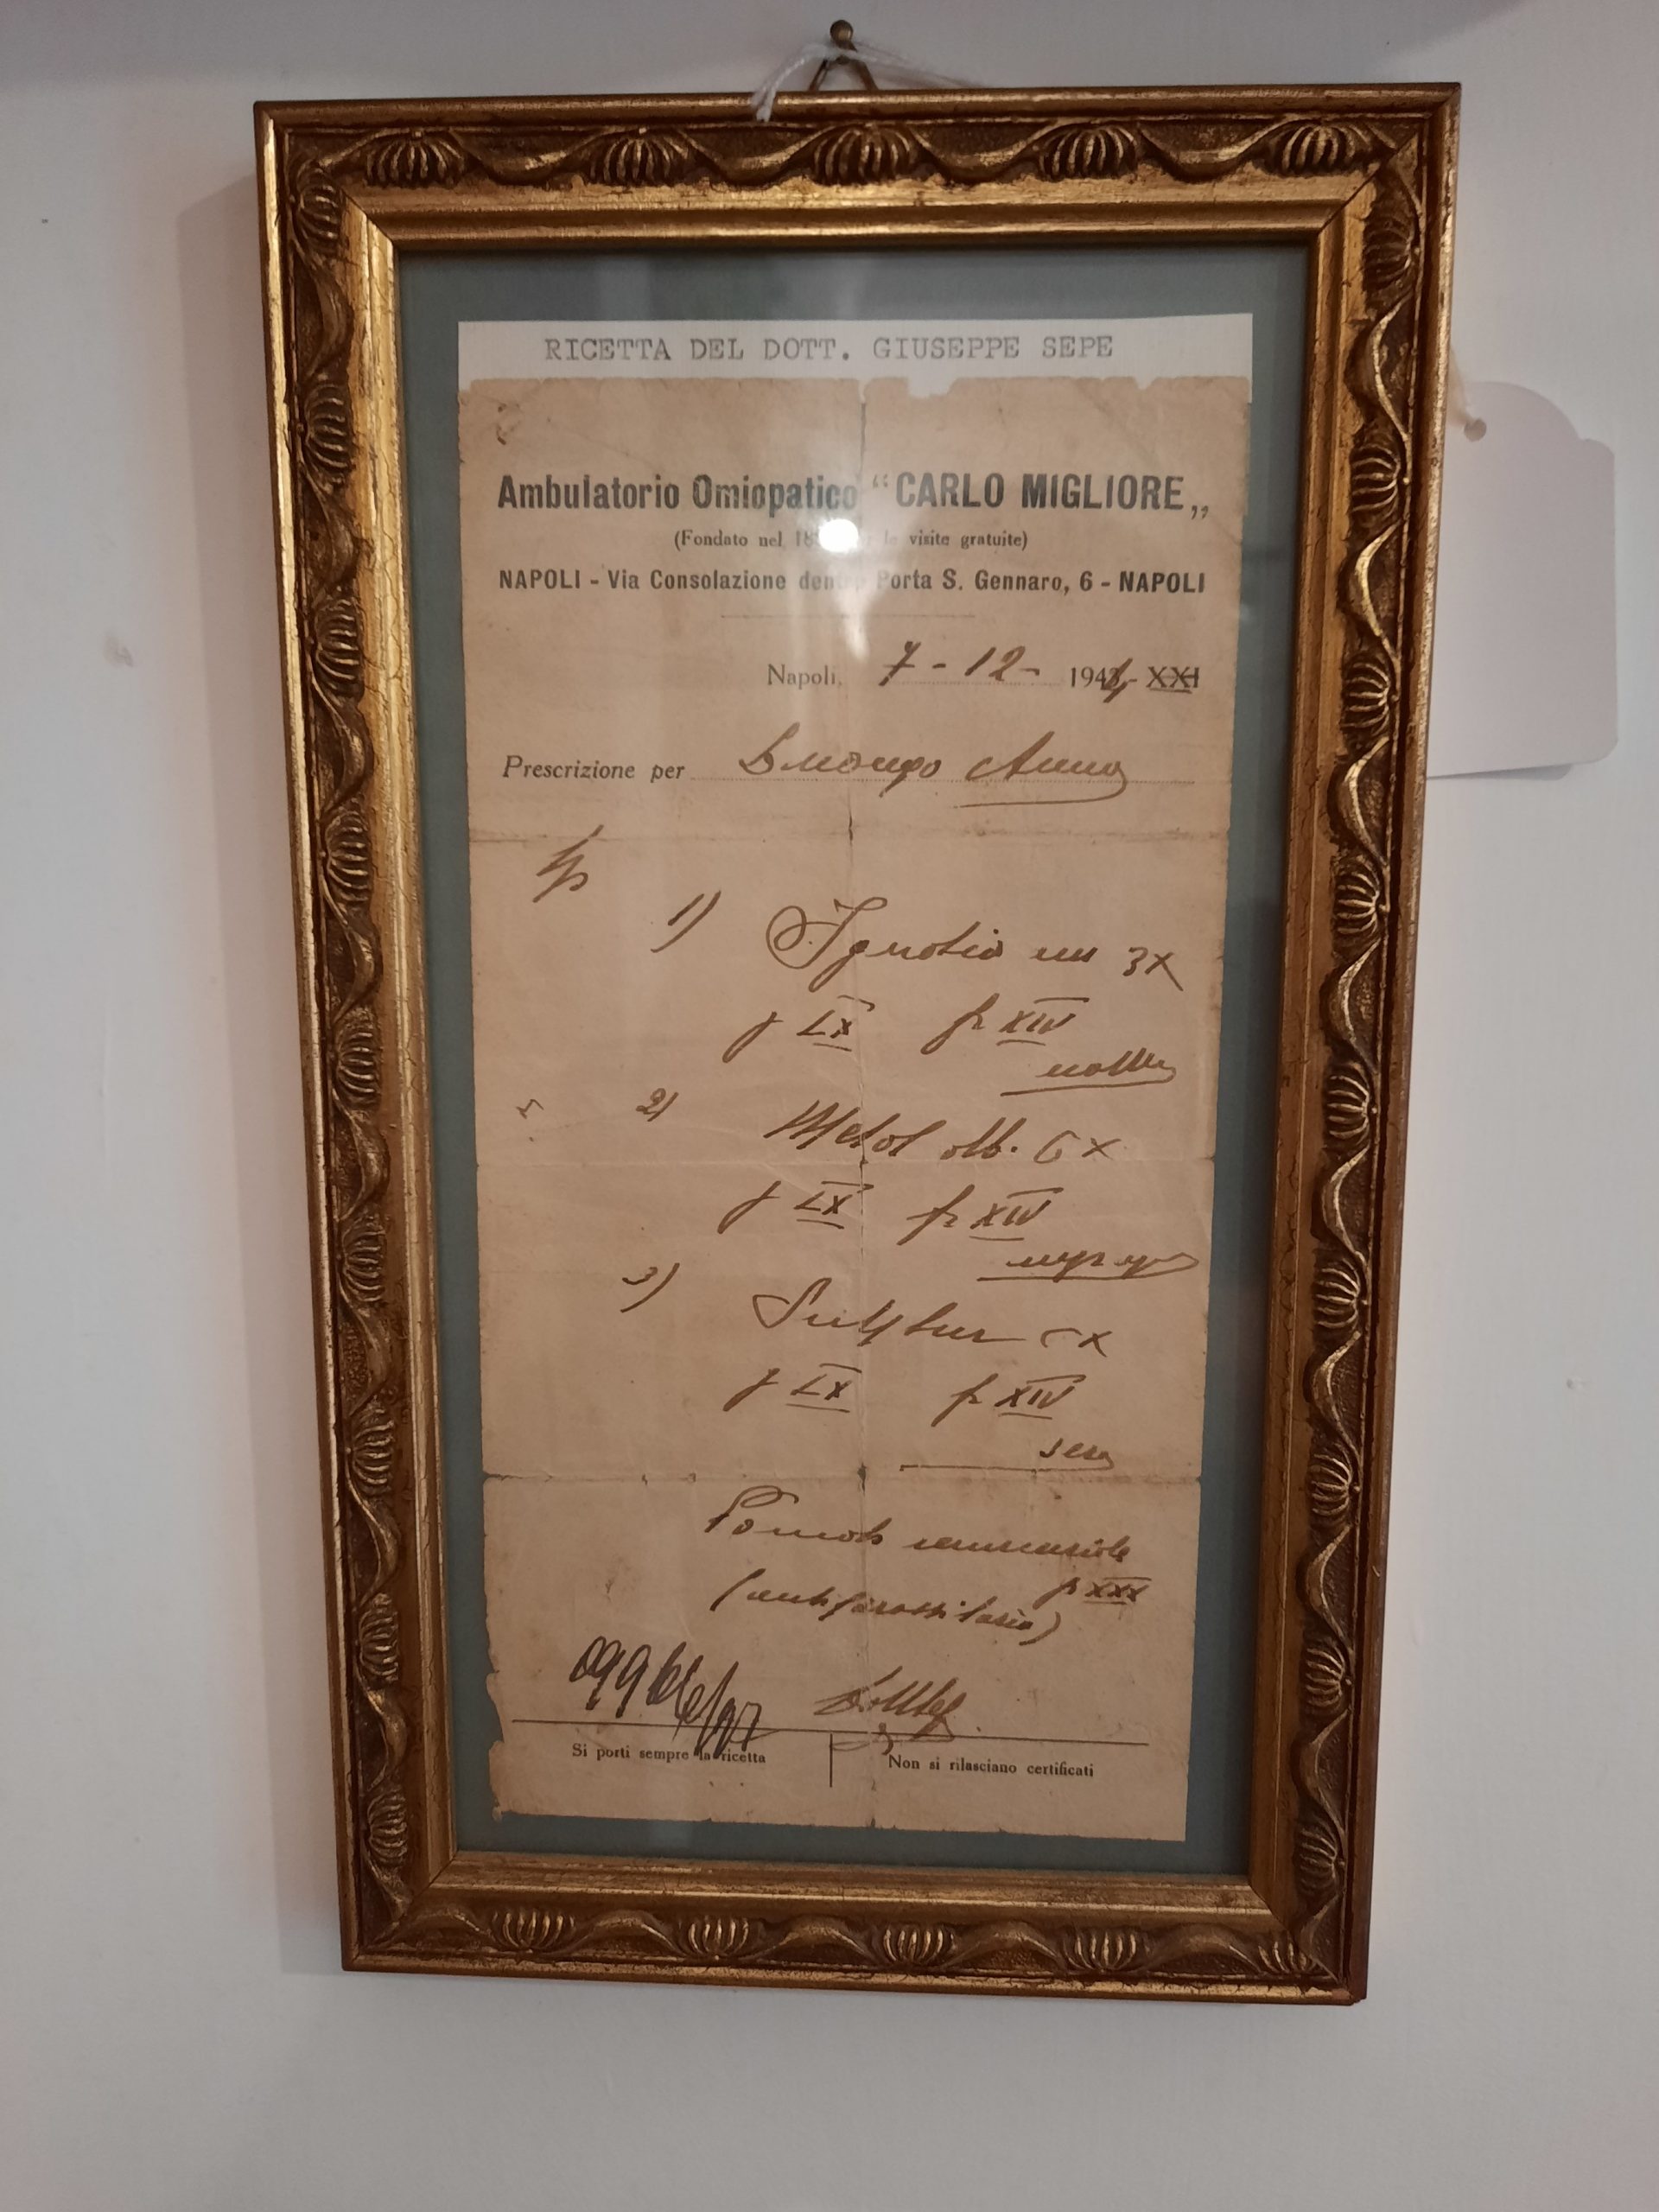 RICETTA DEL DOTT. GIUSEPPE SEPE
Ambulatorio Omiopatico “CARLO MIGLIORE„
(Fondato nel le visite gratuite)
NAPOLI - Via Consolazione dentro Porta S. Gennaro, 6 - NAPOLI
Napoli, 7 - 12 - 1944 - XXI
Prescrizione per Anna
1) Ignatia 3x
LX XIV
notte
2) Metal alb. 6x
LX XIV
3) Sulphur 6x
LX XIV
sera
Pomata
XXX
Si porti sempre la ricetta
Non si rilasciano certificati